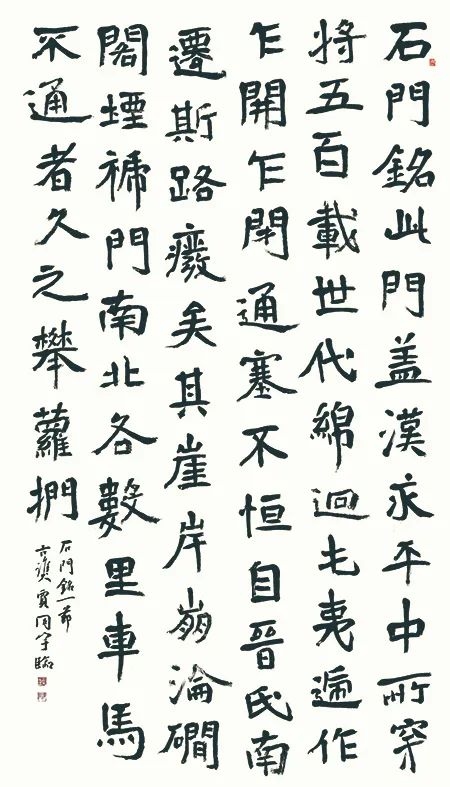 石門銘此門盖漢永平中所穿
將五百載世代綿迴屯夷遞作
乍開乍閇通塞不恒自晉氏南
遷斯路癈矣其崖岸崩淪磵
閣堙褫門南北各數里車馬
不通者久之攀蘿捫
石門銘一節
賈同宇臨